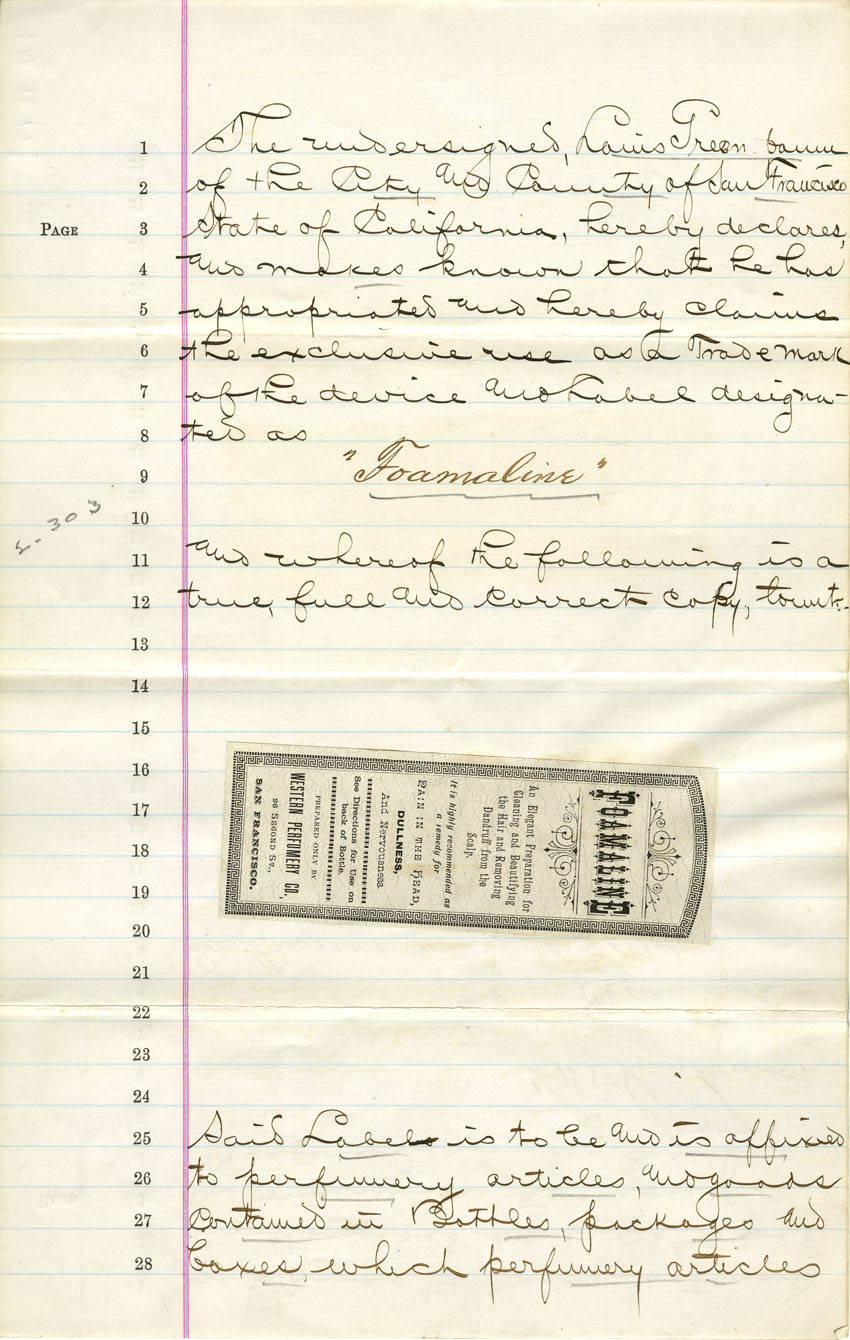 1 The undersigned, Louis Greenbaum
2 of the City and County of San Francisco
PAGE 3 State of California, hereby declares,
4 and makes known that he has
5 appropriated and hereby claims
6 the exclusive use as a Trade mark
7 of the device and Label designa-
8 ted as
9 "Foamaline"
10
11 and whereof the following is a
12 true, full and correct copy, towit:-
13
14
15
16
17
18
19
20
21
22
23
24
25 Said Label is to be and is affixed
26 to perfumery articles, and goods
27 contained in Bottles, packages and
28 boxes, which perfumery articles
2-303
FOAMALINE
An Elegant Preparation for
Cleaning and Beautifying
the Hair and Removing
Dandruff from the
Scalp.
It is highly recommended as
a remedy for
PAIN IN THE HEAD,
DULLNESS,
And Nervousness.
See Directions for Use on
back of Bottle.
PREPARED ONLY BY
WESTERN PERFUMERY CO.,
26 SECOND ST.,
SAN FRANCISCO.